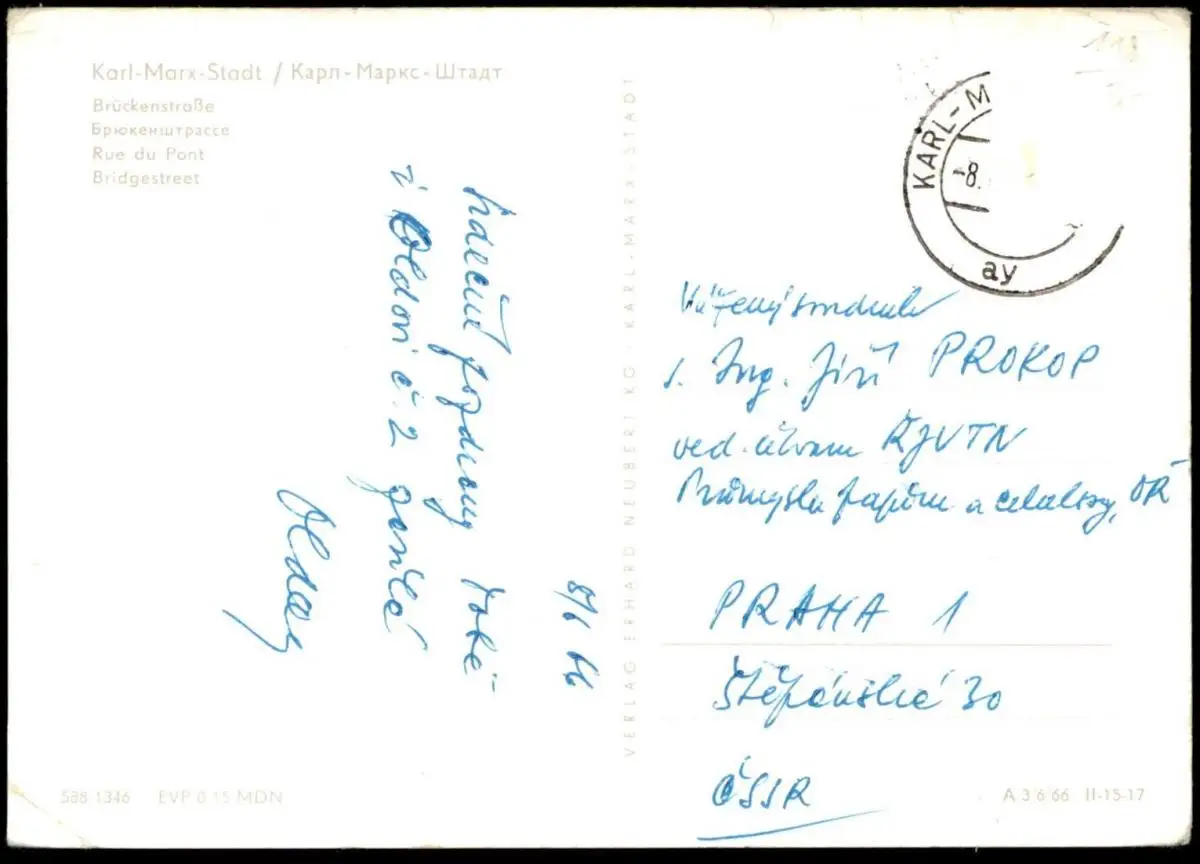 Karl-Marx-Stadt / Карл-Маркс-Штадт
Brückenstraße
Брюкенштрассе
Rue du Pont
Bridgestreet
8/6 66
Srdečné pozdravy také
i Oldovi č. 2 posílá
Olda
VERLAG ERHARD NEUBERT KG · KARL-MARX-STADT
KARL-M
-8.
ay
118
Vážený soudruh
s. Ing. Jiří PROKOP
ved. útvaru ŘJVTN
Průmyslu papíru a celulózy, OŘ
PRAHA 1
Štěpánská 30
ČSSR
588 1346 EVP 0.15 MDN
A 3 6 66 II-15-17